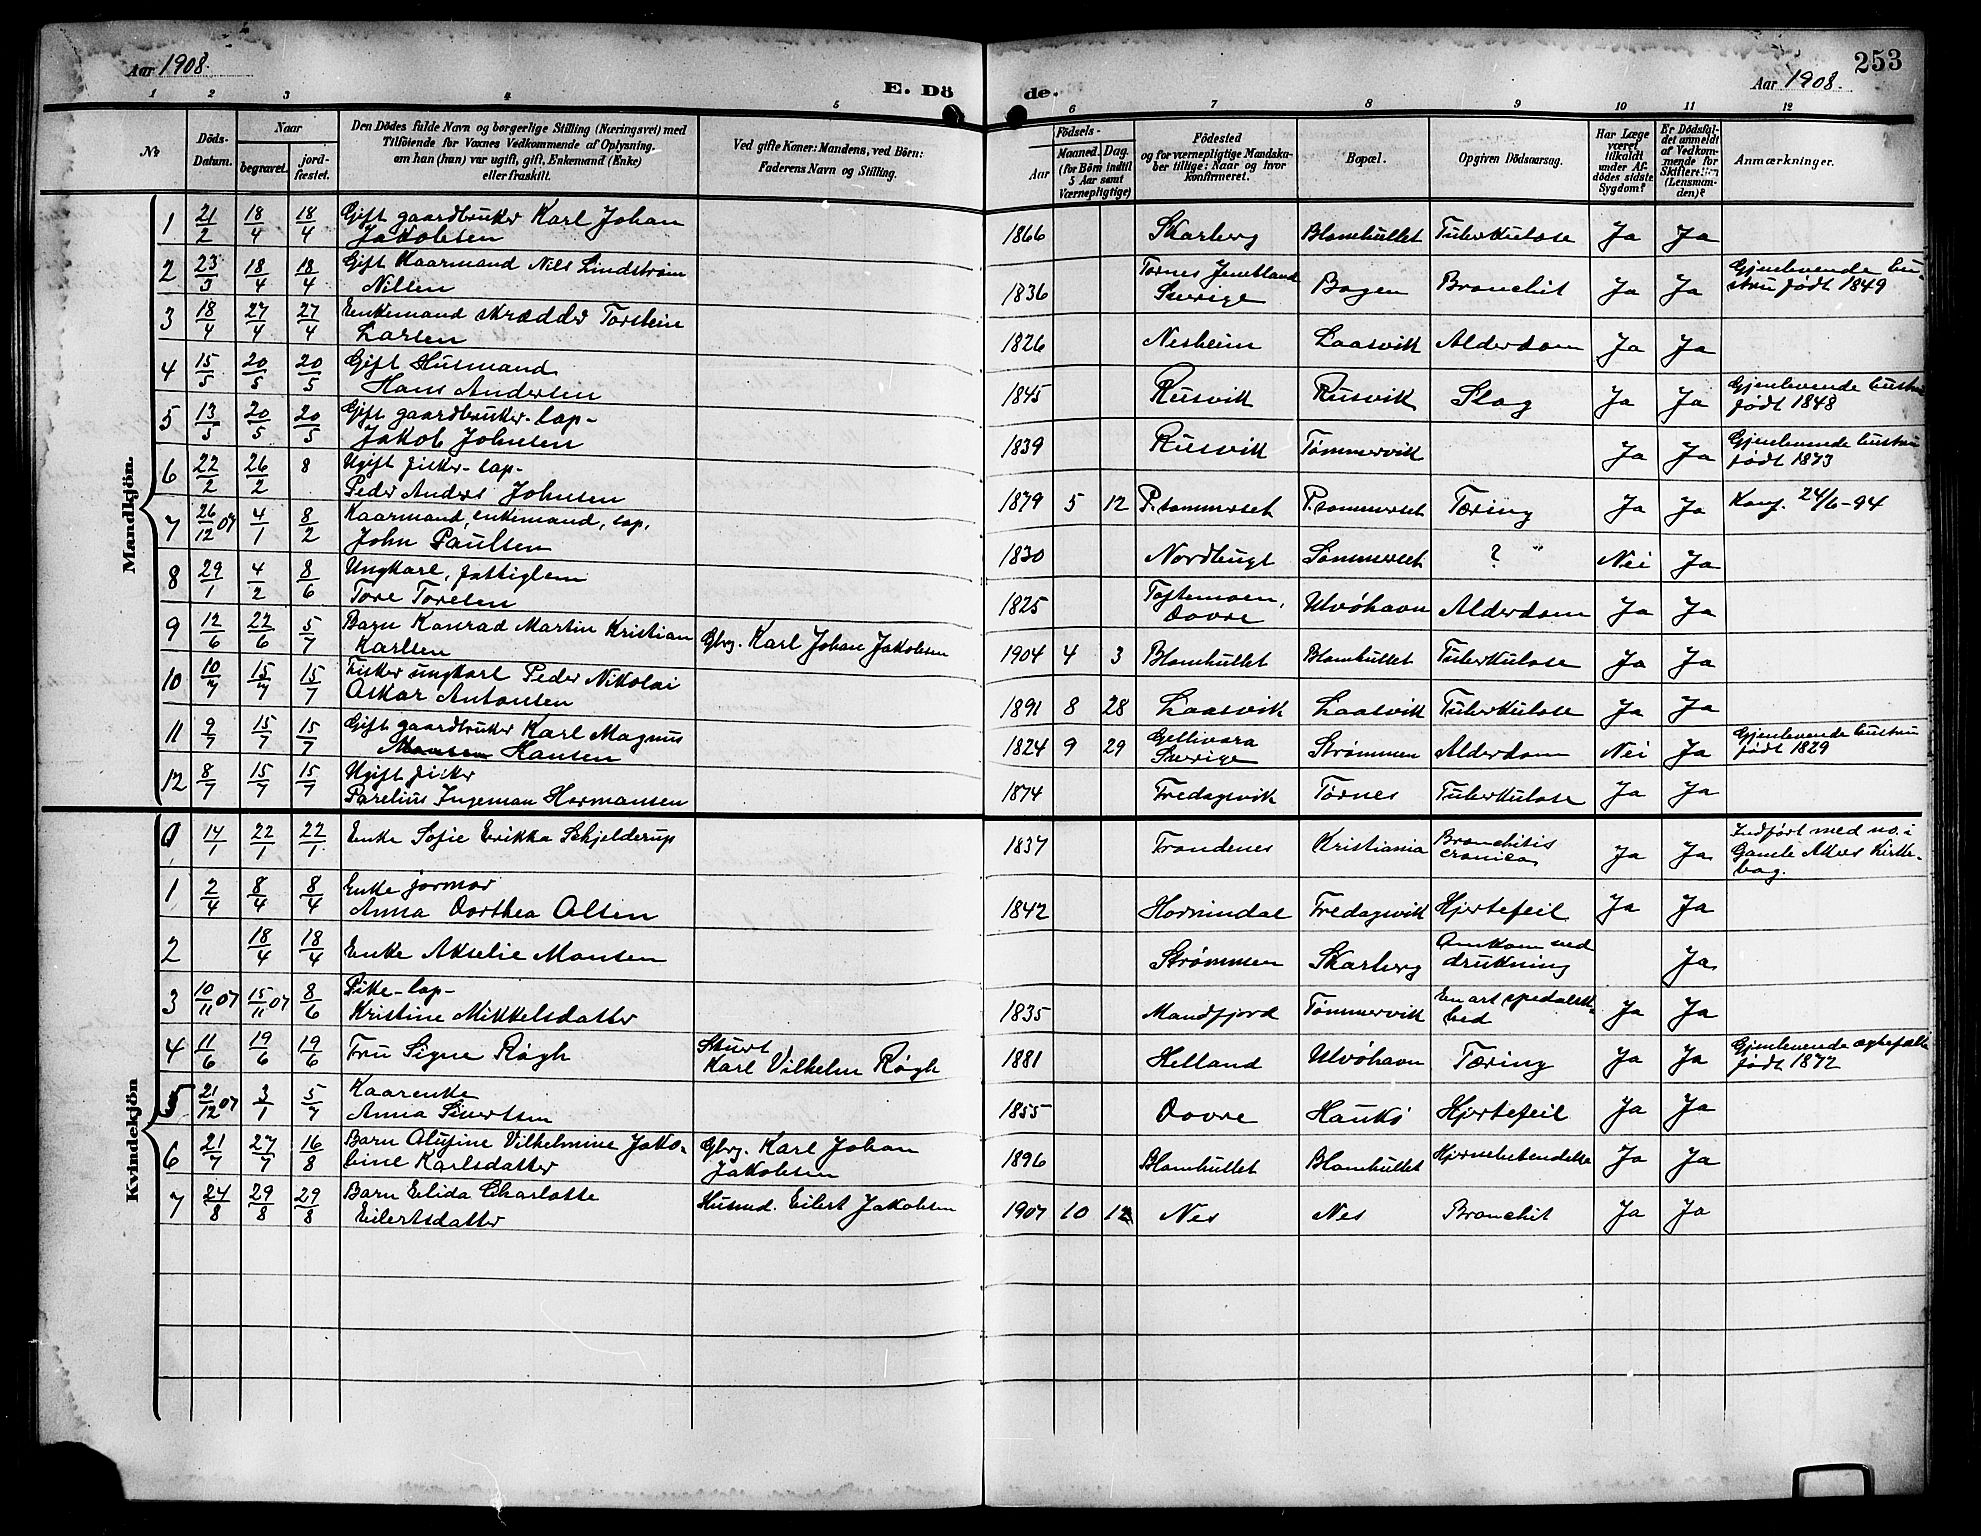 253
Aar 1908.
E. Dö
de.
Aar 1908.
1 2 3 4 5 6 7 8 9 10 11 12
No
Döds-
Datum.
Naar
begravet.
jord-
fæstet.
Den Dödes fulde Navn og borgerlige Stilling (Næringsvei) med
Tilföiende for Voxnes Vedkommende af Oplysning,
om han (hun) var ugift, gift, Enkemand (Enke)
eller fraskilt.
Ved gifte Koner: Mandens, ved Börn:
Faderens Navn og Stilling.
Födsels-
Aar
Maaned. Dag.
(for Börn indtil
5 Aar samt
Værnepligtige)
Födested
og for værnepligtige Mandska-
ber tillige: Naar og hvor
konfirmeret.
Bopæl.
Opgiven Dödsaarsag.
Har Læge
været
tilkaldt
under Af-
dödes sidste
Sygdom?
Er Dödsfal-
det anmeldt
af Vedkom-
mende for
Skifteretten
(Lensman-
den)?
Anmærkninger.
Mandkjön.
1 21/2 18/4 18/4 Gift gaardbruker Karl Johan
Jakobsen 1866 Skarberg Blomhullet Tuberkulose Ja Ja
2 23/3 18/4 18/4 Gift Kaarmand Nils Lindstrøm
Nilsen 1836 Tornes Jemtland
Sverige Bogen Bronchit Ja Ja Gjenlevende hu-
stru født 1849
3 18/4 27/4 27/4 Enkemand skrædder Torstein
Larsen 1826 Nesheim Laasvik Alderdom Ja Ja
4 15/5 20/5 20/5 Gift Husmand
Hans Andersen 1845 Rusvik Rusvik Slag Ja Ja Gjenlevende hustru
født 1848
5 13/5 20/5 20/5 Gift gaardbruker-lap-
Jakob Johnsen 1839 Rusvik Tømmervik Ja Ja Gjenlevende hustru
født 1873
6 22/2 26/2 8 Ugift fisker-lap-
Peder Anders Johnsen 1879 5 12 P.sommerset P.sommerset Tæring Ja Ja Konf. 24/6-94
7 26/12 07 4/1 8/2 Kaarmand, enkemand, lap,
John Paulsen 1830 Nordbugt Sommerset ? Nei Ja
8 29/1 4/2 8/6 Ungkarl, fattiglem
Tore Toresen 1825 Toftemoen,
Dovre Ulvöhavn Alderdom Ja Ja
9 12/6 22/6 5/7 Barn Konrad Martin Kristian
Karlsen Gbrg. Karl Johan Jakobsen 1904 4 3 Blomhullet Blomhullet Tuberkulose Ja Ja
10 10/7 15/7 15/7 Fisker ungkarl Peder Nikolai
Oskar Antonsen 1891 8 28 Laasvik Laasvik Tuberkulose Ja Ja
11 9/7 15/7 15/7 Gift gaardbruker Karl Magnus
Hansen 1824 9 29 Gellivara
Sverige Strømmen Alderdom Nei Ja Gjenlevende hustru
født 1829
12 8/7 15/7 15/7 Ugift fisker
Parelius Ingeman Hermansen 1874 Fredagsvik Tørnes Tuberkulose Ja Ja
Kvindekjön
0 14/1 22/1 22/1 Enke Sofie Erikka Schjelderup 1837 Trondenes Kristiania Bronchitis
cronica Ja Ja Indført med no. i
Gamle Akers Kirke-
bog.
1 2/4 8/4 8/4 Enke jormor
Anna Dorthea Olsen 1842 Hornindal Fredagsvik Hjertefeil Ja Ja
2 18/4 18/4 Enke Akselie Monsen Strømmen Skarberg Omkom ved
drukning Ja
3 10/11 07 15/11 07 8/6 Pike-lap-
Kristine Mikkelsdatter 1835 Mandfjord Tømmervik En art spedalsk-
hed Ja Ja
4 11/6 19/6 19/6 Fru Signe Røgh Skurt
Karl Vilhelm Røgh 1881 Helland Ulvöhavn Tæring Ja Ja Gjenlevende ægtefælle
født 1872
5 21/12 07 3/1 5/7 Kaarenke
Anna Sivertsen 1855 Dovre Haukö Hjertefeil Ja Ja
6 21/7 27/7 16/8 Barn Olufine Vilhelmine Jako-
bine Karlsdatter Gbrg. Karl Johan
Jakobsen 1896 Blomhullet Blomhullet Hjernebetendelse Ja Ja
7 24/8 29/8 29/8 Barn Elida Charlotte
Eilertsdatter Husmd. Eilert Jakobsen 1907 10 12 Nes Nes Bronchit Ja Ja